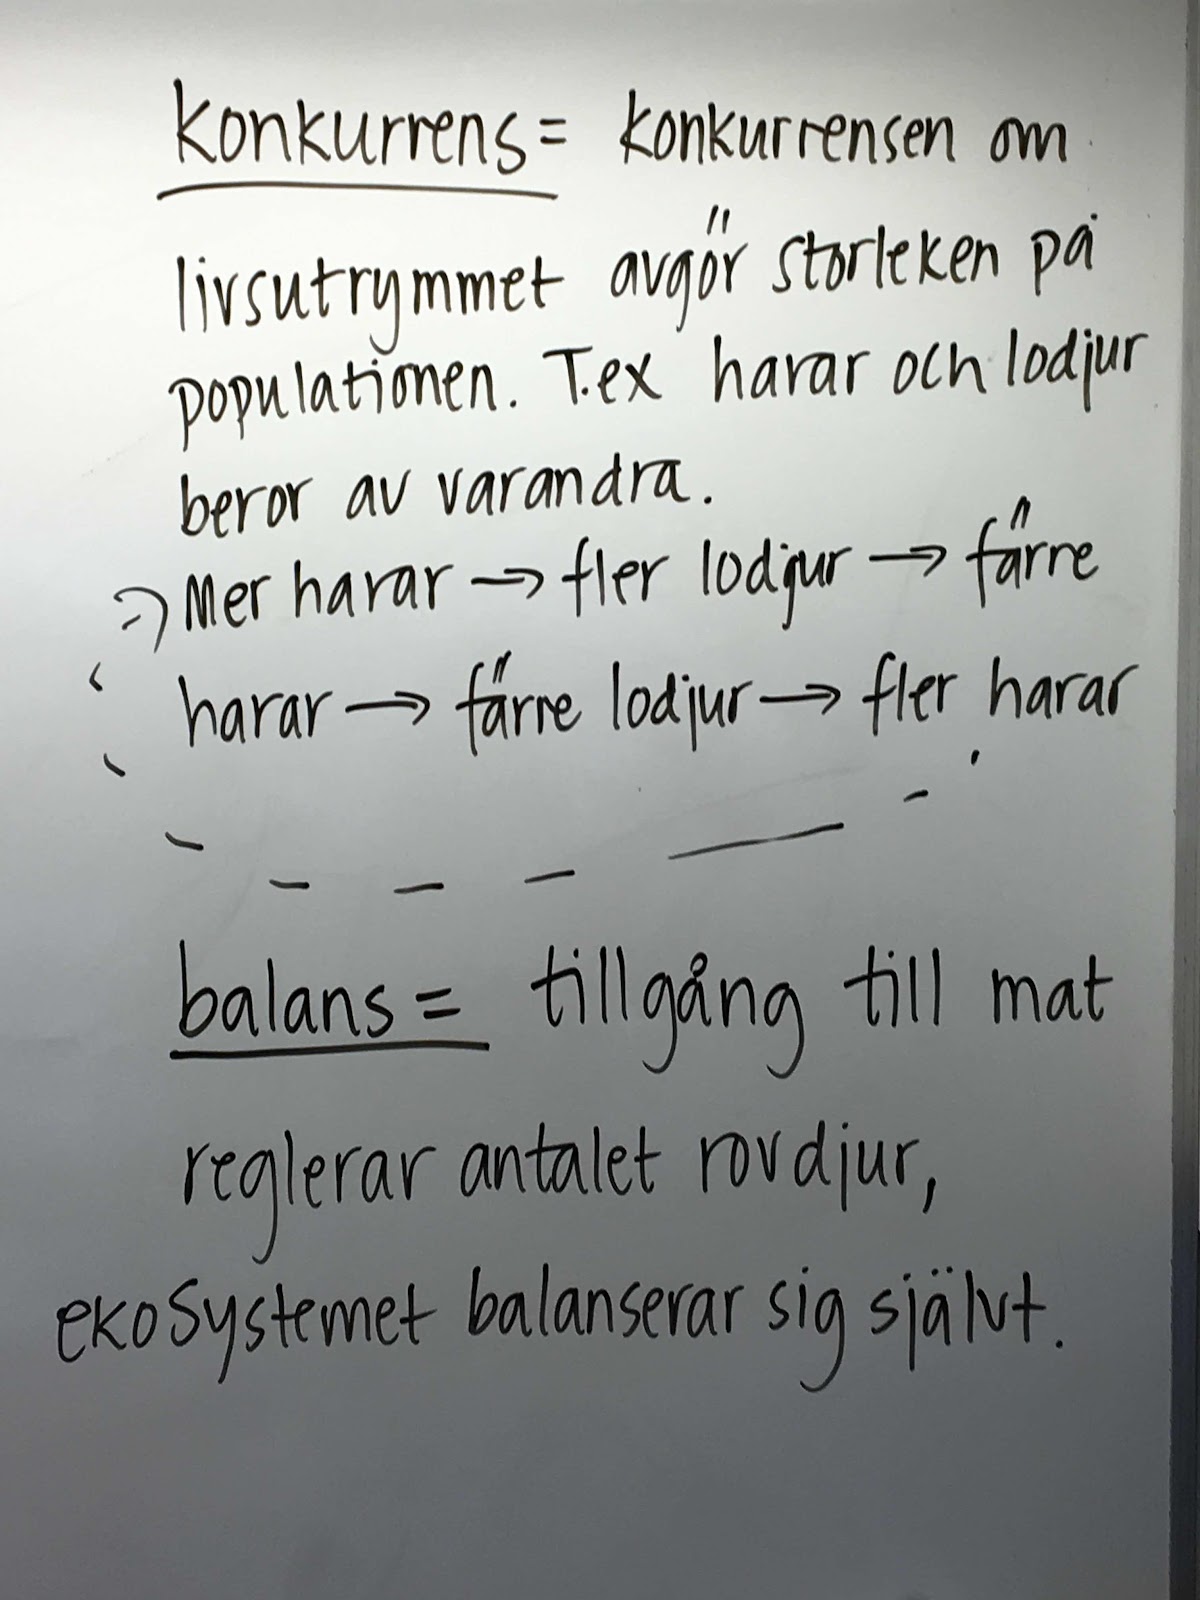 konkurrens = konkurrensen om
livsutrymmet avgör storleken på
populationen. T.ex harar och lodjur
beror av varandra.
Mer harar → fler lodjur → färre
harar → färre lodjur → fler harar
balans = tillgång till mat
reglerar antalet rovdjur,
ekosystemet balanserar sig självt.